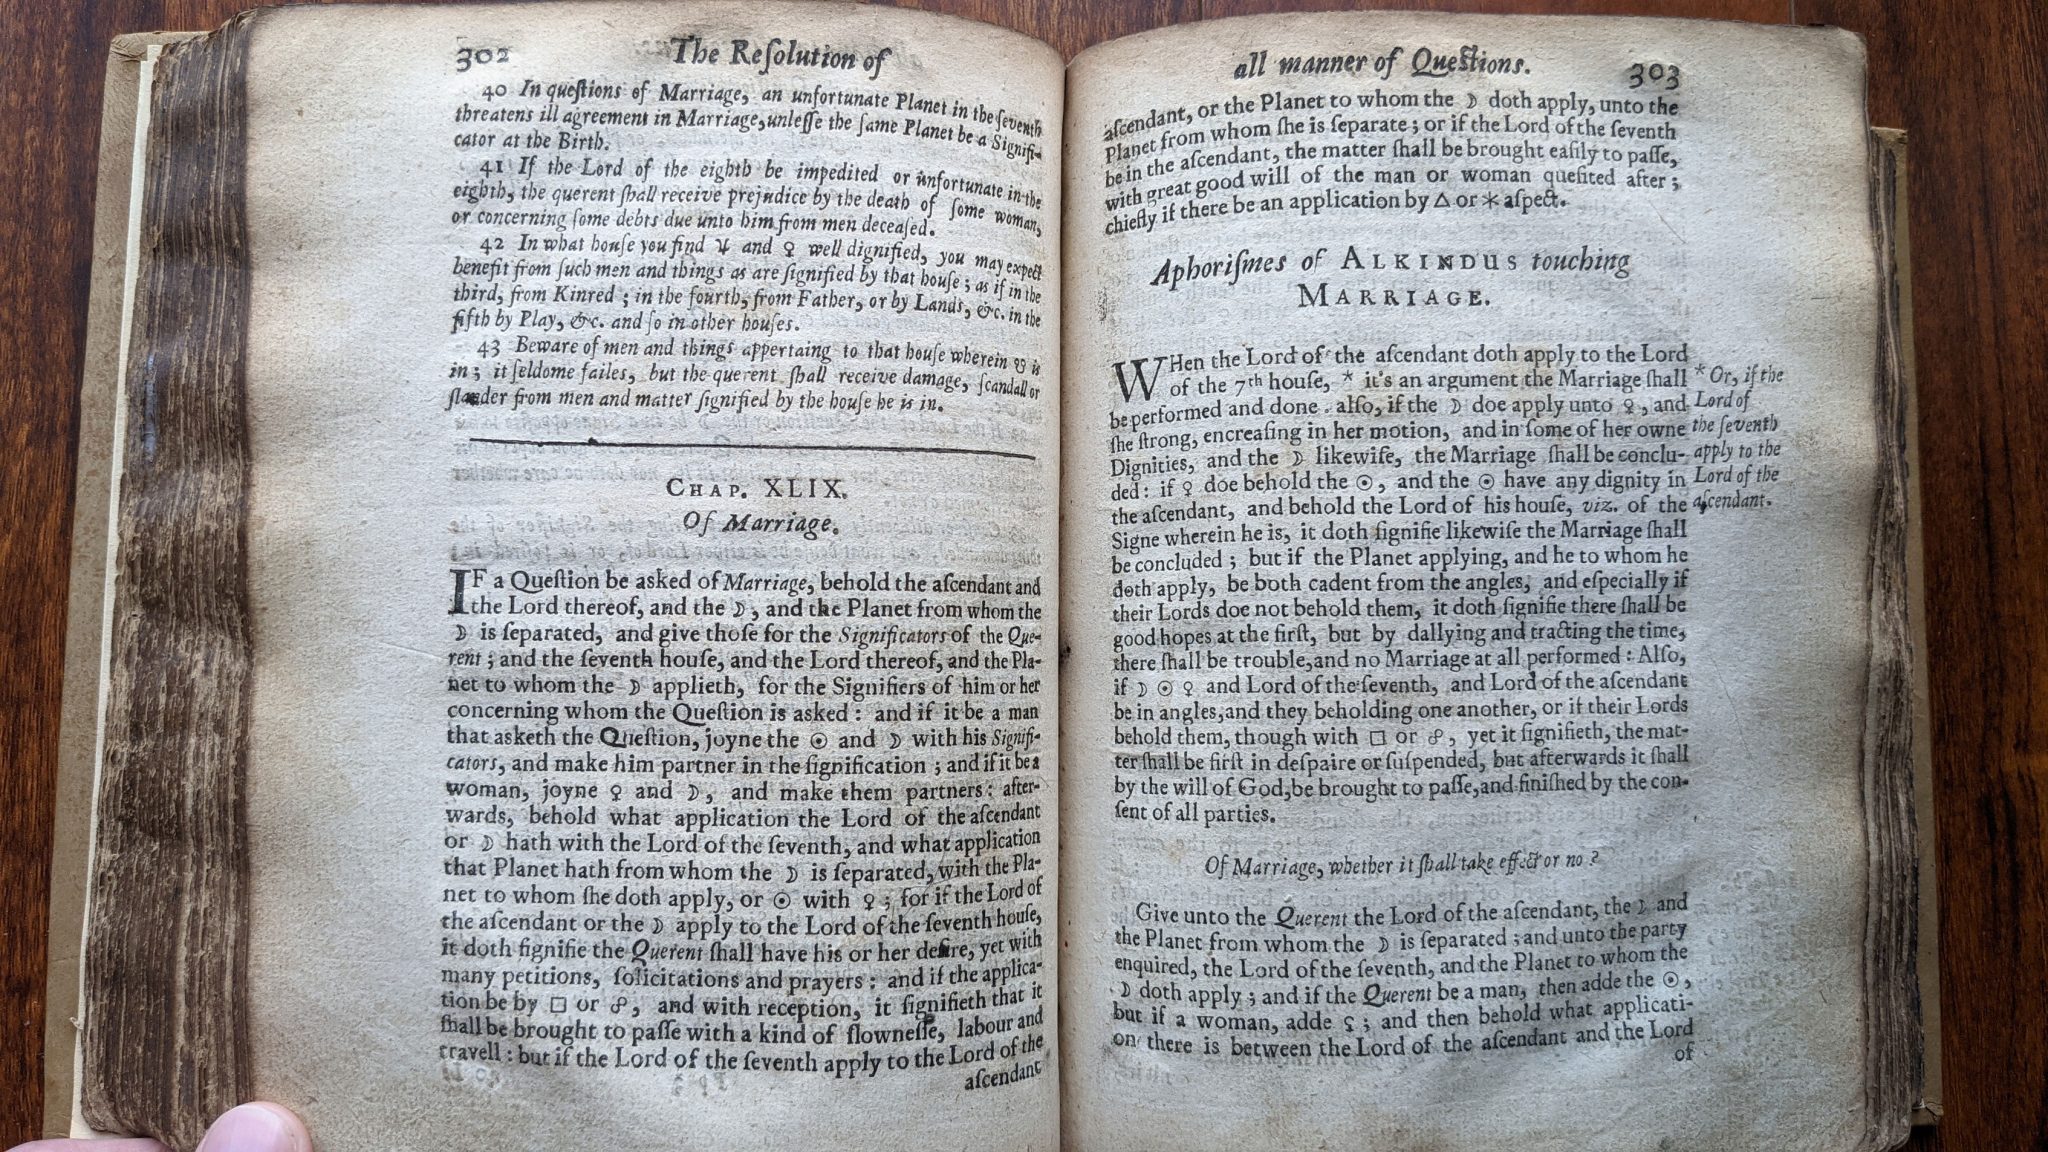 302 The Reſolution of
40 In queſtions of Marriage, an unfortunate Planet in the ſeventh
threatens ill agreement in Marriage, unleſſe the ſame Planet be a Signifi-
cator at the Birth.
41 If the Lord of the eighth be impedited or unfortunate in the
eighth, the querent ſhall receive prejudice by the death of ſome woman,
or concerning ſome debts due unto him from men deceaſed.
42 In what houſe you find ♃ and ♀ well dignified, you may expect
benefit from ſuch men and things as are ſignified by that houſe; as if in the
third, from Kinred; in the fourth, from Father, or by Lands, &c. in the
fifth by Play, &c. and ſo in other houſes.
43 Beware of men and things appertaing to that houſe wherein ☋ is
in; it ſeldome failes, but the querent ſhall receive damage, ſcandall or
ſlander from men and matter ſignified by the houſe he is in.
CHAP. XLIX.
Of Marriage.
IF a Queſtion be asked of Marriage, behold the aſcendant and
the Lord thereof, and the ☽, and the Planet from whom the
☽ is ſeparated, and give thoſe for the Significators of the Que-
rent; and the ſeventh houſe, and the Lord thereof, and the Pla-
net to whom the ☽ applieth, for the Signifiers of him or her
concerning whom the Queſtion is asked: and if it be a man
that asketh the Queſtion, joyne the ☉ and ☽ with his Signifi-
cators, and make him partner in the ſignification; and if it be a
woman, joyne ♀ and ☽, and make them partners: after-
wards, behold what application the Lord of the aſcendant
or ☽ hath with the Lord of the ſeventh, and what application
that Planet hath from whom the ☽ is ſeparated, with the Pla-
net to whom ſhe doth apply, or ☉ with ♀; for if the Lord of
the aſcendant or the ☽ apply to the Lord of the ſeventh houſe,
it doth ſignifie the Querent ſhall have his or her deſire, yet with
many petitions, ſolicitations and prayers: and if the applica-
tion be by □ or ☍, and with reception, it ſignifieth that it
ſhall be brought to paſſe with a kind of ſlowneſſe, labour and
travell: but if the Lord of the ſeventh apply to the Lord of the
aſcendant
all manner of Queſtions. 303
aſcendant, or the Planet to whom the ☽ doth apply, unto the
Planet from whom ſhe is ſeparate; or if the Lord of the ſeventh
be in the aſcendant, the matter ſhall be brought eaſily to paſſe,
with great good will of the man or woman queſited after;
chiefly if there be an application by △ or ⚹ aſpect.
Aphoriſmes of ALKINDUS touching
MARRIAGE.
WHen the Lord of the aſcendant doth apply to the Lord
of the 7th houſe, * it's an argument the Marriage ſhall
be performed and done. alſo, if the ☽ doe apply unto ♀, and
ſhe ſtrong, encreaſing in her motion, and in ſome of her owne
Dignities, and the ☽ likewiſe, the Marriage ſhall be conclu-
ded: if ♀ doe behold the ☉, and the ☉ have any dignity in
the aſcendant, and behold the Lord of his houſe, viz. of the
Signe wherein he is, it doth ſignifie likewiſe the Marriage ſhall
be concluded; but if the Planet applying, and he to whom he
doth apply, be both cadent from the angles, and eſpecially if
their Lords doe not behold them, it doth ſignifie there ſhall be
good hopes at the firſt, but by dallying and tracting the time,
there ſhall be trouble, and no Marriage at all performed: Alſo,
if ☽ ☉ ♀ and Lord of the ſeventh, and Lord of the aſcendant
be in angles, and they beholding one another, or if their Lords
behold them, though with □ or ☍, yet it ſignifieth, the mat-
ter ſhall be firſt in deſpaire or ſuſpended, but afterwards it ſhall
by the will of God, be brought to paſſe, and finiſhed by the con-
ſent of all parties.
* Or, if the
Lord of
the ſeventh
apply to the
Lord of the
aſcendant.
Of Marriage, whether it ſhall take effect or no?
Give unto the Querent the Lord of the aſcendant, the ☽ and
the Planet from whom the ☽ is ſeparated; and unto the party
enquired, the Lord of the ſeventh, and the Planet to whom the
☽ doth apply; and if the Querent be a man, then adde the ☉,
but if a woman, adde ♀; and then behold what applicati-
on there is between the Lord of the aſcendant and the Lord
of